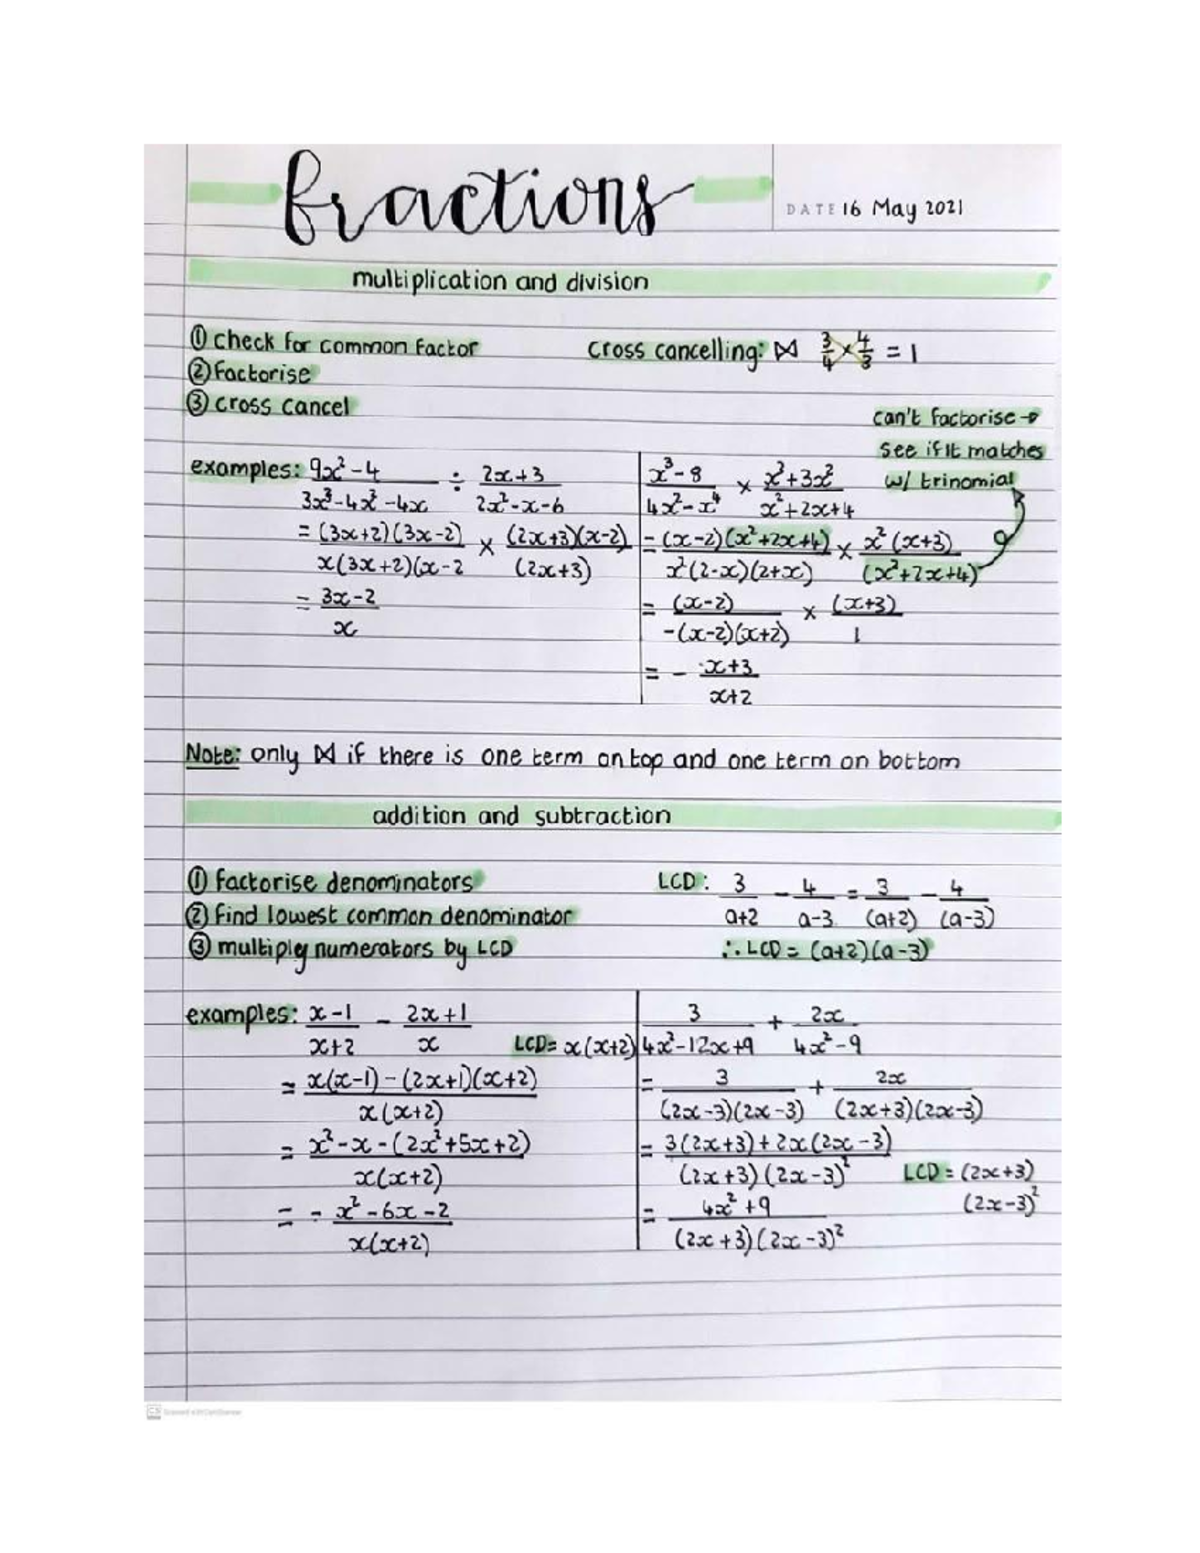 fractions
DATE 16 May 2021
multiplication and division
① check for common factor
② factorise
③ cross cancel
cross cancelling: ⋈ 3/4 × 4/3 = 1
can't factorise →
see if it matches
w/ trinomial
examples: (9x² - 4)/(3x³ - 4x² - 4x) ÷ (2x + 3)/(2x² - x - 6)
= (3x+2)(3x-2)/x(3x+2)(x-2 × (2x+3)(x-2)/(2x+3)
= (3x-2)/x
(x³ - 8)/(4x² - x⁴) × (x³ + 3x²)/(x² + 2x + 4)
= (x-2)(x²+2x+4)/x²(2-x)(2+x) × x²(x+3)/(x²+2x+4)
= (x-2)/-(x-2)(x+2) × (x+3)/1
= - (x+3)/(x+2)
Note: only ⋈ if there is one term on top and one term on bottom
addition and subtraction
① factorise denominators
② find lowest common denominator
③ multiply numerators by LCD
LCD: 3/(a+2) - 4/(a-3) = 3/(a+2) - 4/(a-3)
∴ LCD = (a+2)(a-3)
examples: (x-1)/(x+2) - (2x+1)/x
LCD = x(x+2)
= x(x-1) - (2x+1)(x+2)/x(x+2)
= x² - x - (2x² + 5x + 2)/x(x+2)
= - x² - 6x - 2/x(x+2)
3/(4x² - 12x + 9) + 2x/(4x² - 9)
= 3/(2x-3)(2x-3) + 2x/(2x+3)(2x-3)
= 3(2x+3) + 2x(2x-3)/(2x+3)(2x-3)²
LCD = (2x+3)
(2x-3)²
= 4x² + 9/(2x+3)(2x-3)²
CS